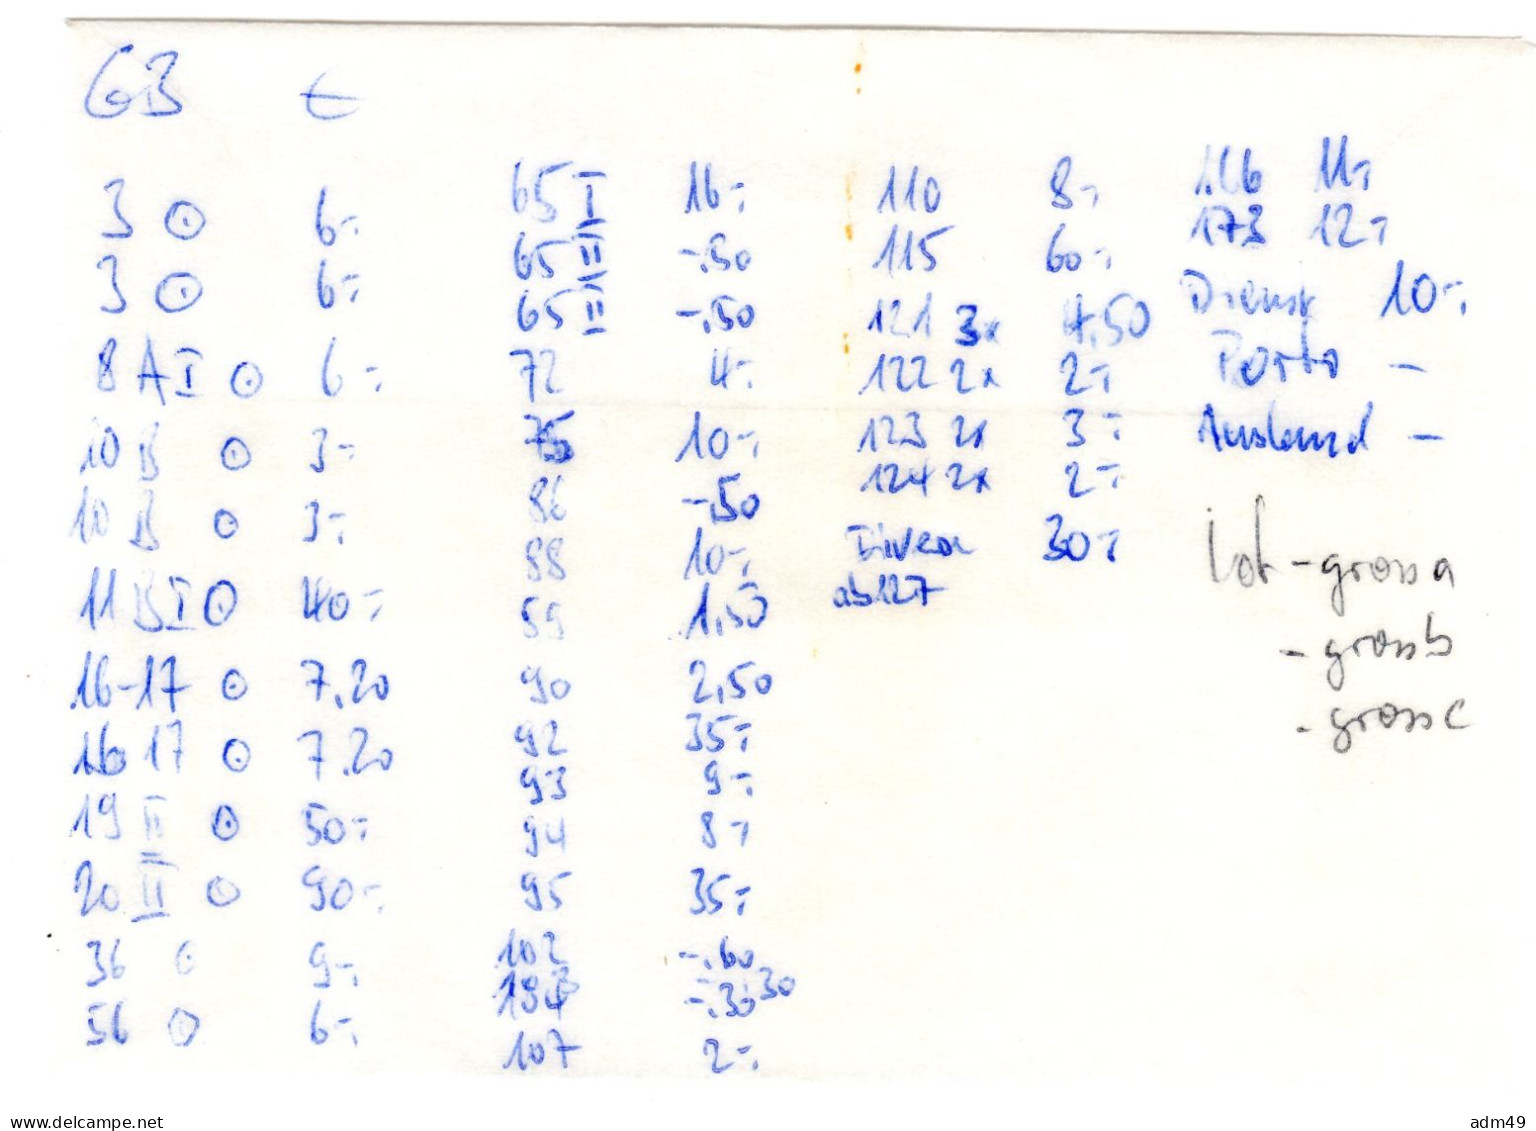 GB €
3 ⊙ 6,-
3 ⊙ 6,-
8 A I ⊙ 6,-
10 B ⊙ 3,-
10 B ⊙ 3,-
11 B I ⊙ 40,-
16-17 ⊙ 7.20
16 17 ⊙ 7.20
19 II ⊙ 50,-
20 II ⊙ 90,-
36 ⊙ 9,-
56 ⊙ 6,-
65 I 16,-
65 II -.50
65 II -.50
72 4,-
75 10,-
86 -.50
88 10,-
1,50
90 2,50
92 35,-
93 9,-
94 8,-
95 35,-
102 -.60
-.30 30
107 2,-
110 8,-
115 60,-
121 3x 4,50
122 2x 2,-
123 2x 3,-
124 2x 2,-
30,-
ab 127
166 11,-
173 12,-
Dienst 10,-
Porto -
Ausland -
Lot - gross a
- gross b
- gross c
delcampe.net
adm49